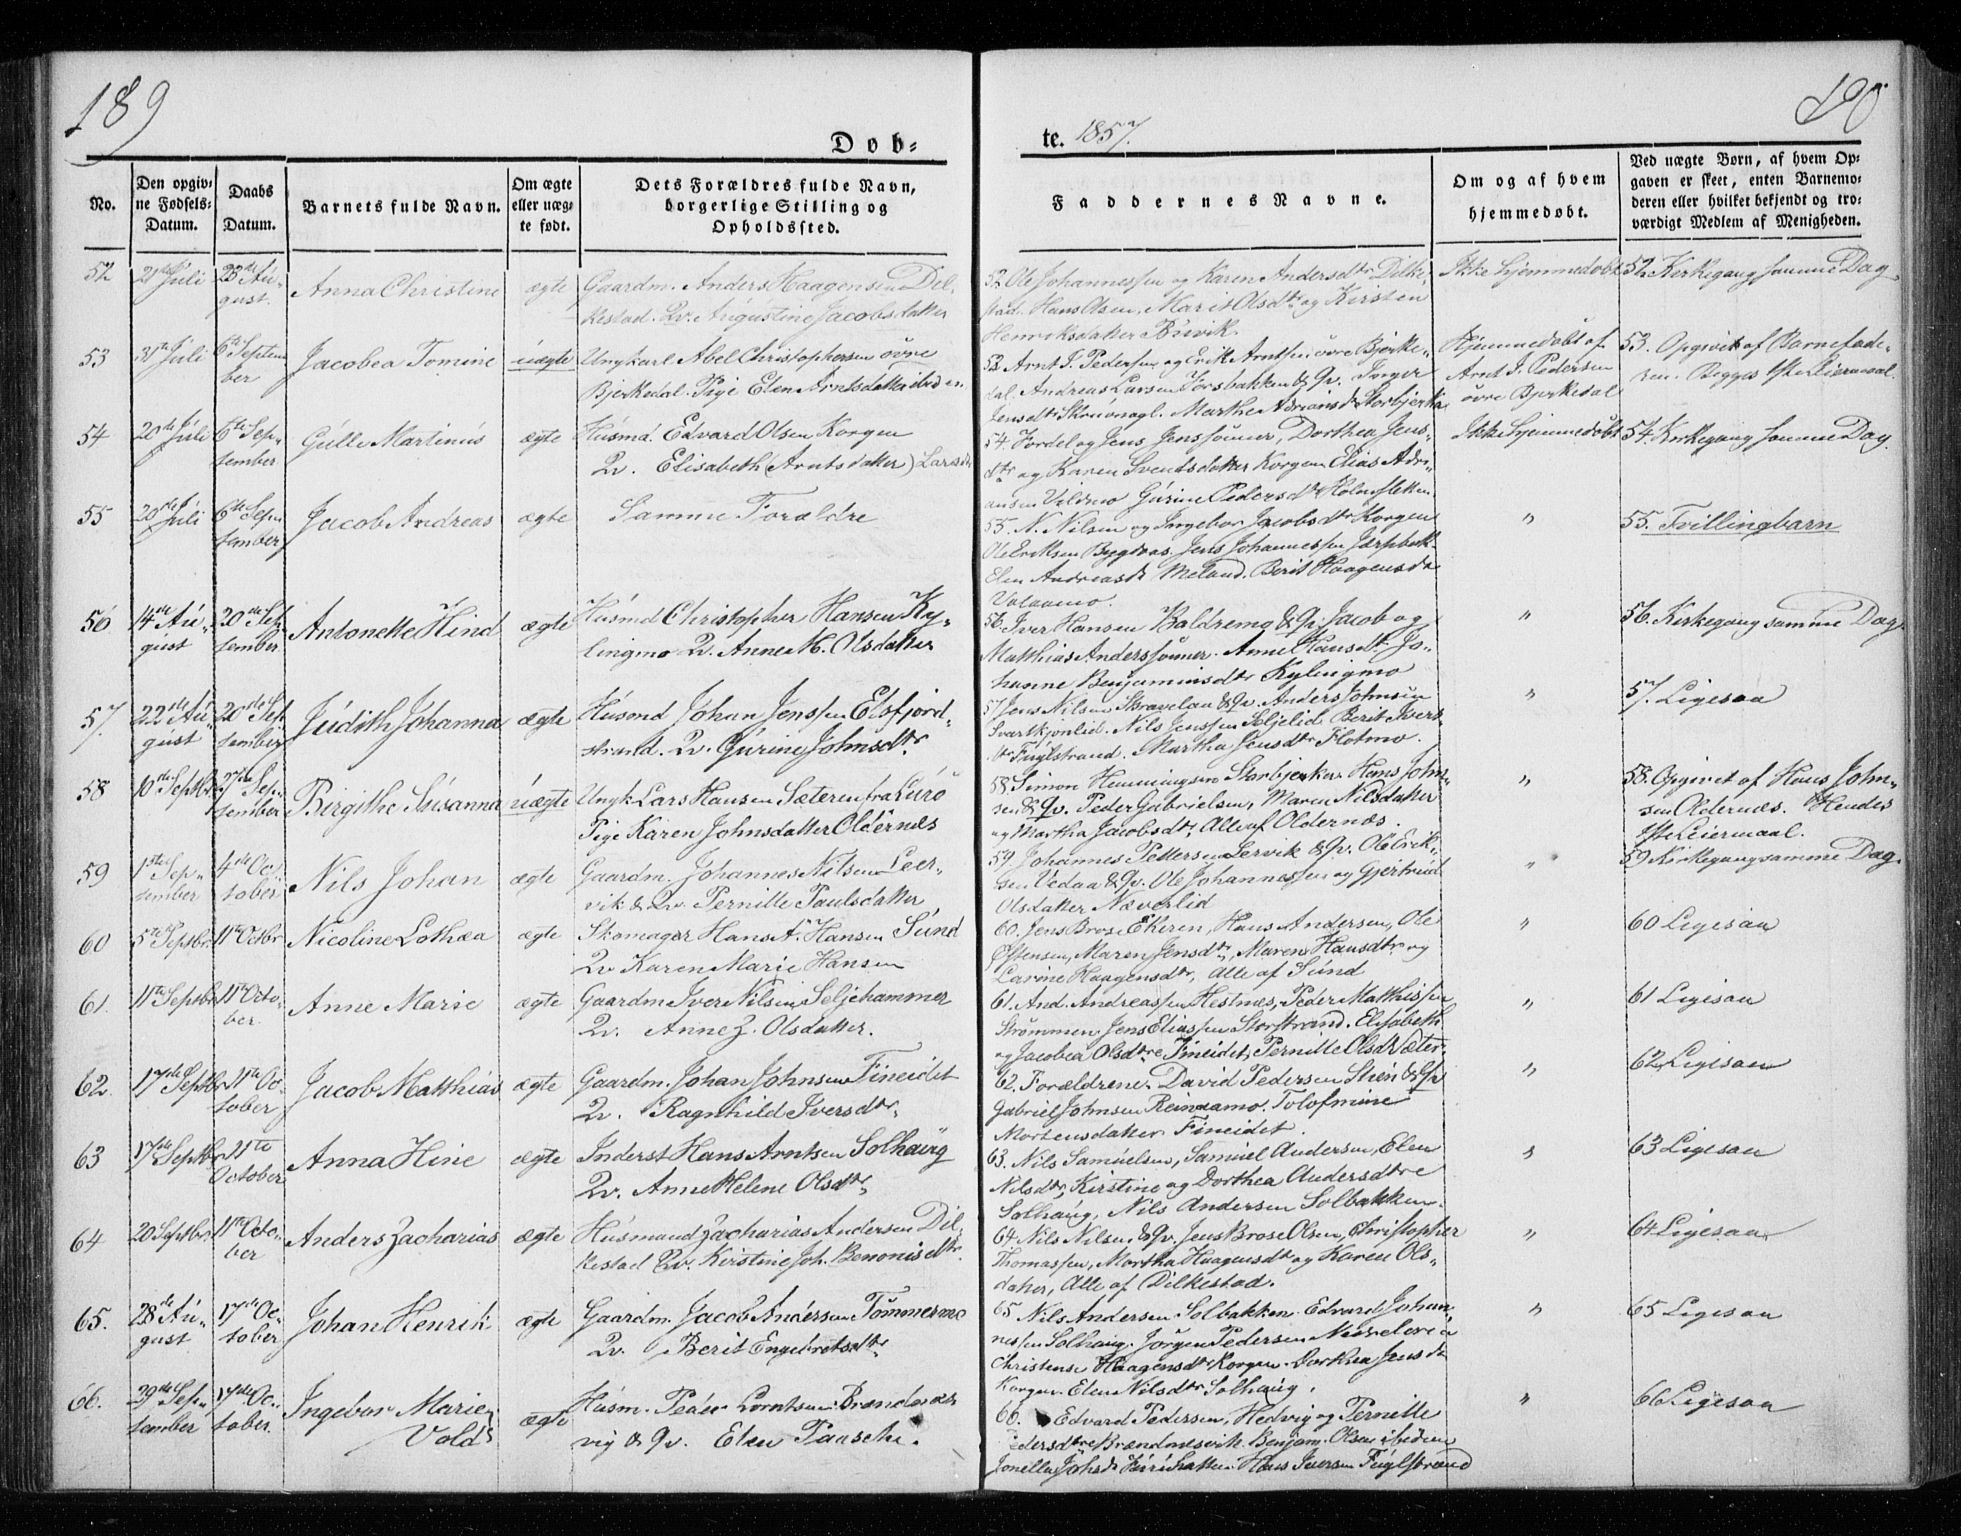 189
190
Døb-
te. 1857.
No.
Den opgiv-
ne Fødsels-
Datum.
Daabs
Datum.
Barnets fulde Navn.
Om ægte
eller uæg-
te født.
Dets Forældres fulde Navn,
borgerlige Stilling og
Opholdssted.
Faddernes Navne.
Om og af hvem
hjemmedøbt.
Ved uægte Børn, af hvem Op-
gaven er skeet, enten Barnemo-
deren eller hvilket bekjendt og tro-
værdigt Medlem af Menigheden.
52
Juli
23de Au-
gust.
Anna Christine
ægte
Gaardm. Anders Haagensen Dil-
kestad. Qv. Augustine Jacobsdatter
52 Ole Johannessen og Karen Andersdtr Dilke-
stad. Hans Olsen, Marit Olsdtr og Kirsten
Henriksdatter
Ikke hjemmedøbt
52 Kirkegang samme Dag
53
Juli
6te Septem
ber
Jacobea Tomine
uægte
Ungkarl Abel Christophersen øvre
Bjerkedal. Pige Elen Arntsdatter ibiden
53 Arnt J. Pedersen og Erik Arntsen øvre Bjerke-
dal. Andreas Larsen & Qv. Inger
Jensdtr Marthe Adriansdr Storbjerka
Hjemmedøbt af
Arnt J. Pedersen
øvre Bjerkedal
53. Opgivet af Barnefade-
ren. Begges 1ste Leiermaal.
54
20de Juli
6te Sep-
tember
Gulle Martinus
ægte
Husmd. Edvard Olsen Korgen
Qv. Elisabeth (Arntsdatter) Larsdr
54. Fordel og Jens Jenssønner, Dorthea Jens-
dtr og Karen Sventsdatter Korgen Elias Adri-
ansen Gurine Pedersdtr
Ikke hjemmedøbt
54. Kirkegang samme Dag.
55
20de Juli
6te Sep-
tember
Jacob Andreas
ægte
Samme Forældre
55. N. Nilsen og Ingebor Jacobsdtr Korgen
Ole Eriksen Bygdaas. Jens Johannessen
Elen Andreasdr Meland. Berit Haagensdr
"
55. Tvillingbarn
56
14de Au-
gust
20de Sep
tember
Antonette Hind
ægte
Husmd Christopher Hansen Ky-
lingmo Qv. Anne M. Olsdatter
56. Iver Hansen Baldremo & Qv. Jacob og
Matthias Anderssønner. Anne Hansdtr Jo-
hanne Benjaminsdtr Kylingmo
"
56. Kirkegang samme Dag.
57.
22de Au-
gust
20de Sep
tember
Judith Johanna
ægte
Husmd Johan Jenssen Elsfjord-
strand. Qv. Gurine Johnsdtr.
57 Jens Nilsen & Qv. Anders Johnsen
Svartkjønlid. Nils Jenssen Seljelid Berit Ivers-
dtr Fuglstrand. Martha Jensdtr Flotmo.
"
57. Ligesaa
58
10de Septbr
27de Sep-
tember
Birgithe Susanna
uægte
Ungk. Lars Hansen Sæteren fra Lurö
Pige Karen Johnsdatter Oldernæs
58 Simon Hemmingsen Storbjerka Hans John-
sen & Qv. Peder Gabrielsen, Maren Nilsdatter
og Martha Jacobsdtr, Alle af Oldernæs.
"
58. Opgivet af Hans John-
sen Oldernæs. Hendes
1ste Leiermaal.
59
1ste Sep-
tember
4de Oc-
tober
Nils Johan
ægte
Gaardm. Johannes Nilsen Leer-
vik & Qv. Pernille Paulsdatter
59 Johannes Pettersen Lervik & Qv. Ole Erik-
sen Vedaa & Qv. Ole Johannessen og Gjertrud
Olsdatter Næverlid
"
59 Kirkegang samme Dag.
60
5te Septbr.
11te Octbr
Nicoline Lothea
ægte
Skomager Hans A. Hansen Sund
Qv Karen Marie Hansen
60. Jens Brose Ekeren, Hans Andersen, Ole
Øftensen, Maren Jensdtr, Maren Hansdtr og
Carine Haagensdtr, Alle af Sund
"
60 Ligesaa
61.
11te Septbr
11te Octo-
ber.
Anne Marie
ægte
Gaardm Iver Nilsen Seljehammer
Qv. Anne Z. Olsdatter.
61. And. Andreassen Hestnes, Peder Matthissen
Strømmen. Jens Eliassen Storstrand. Elisabeth
og Jacobea Olsdtre Fineidet, Pernille Olsd
"
61 Ligesaa
62.
17de Septbr
11te Oc
tober
Jacob Matthias
ægte
Gaardm. Johan Johnsen Fineidet
Qv. Ragnhild Iversdtr.
62. Forældrene. David Pedersen Stien & Qv
Gabriel Johnsen Reinaamo.
Mortensdatter Fineidet.
"
62 Ligesaa
63
17de Septbr
11te
October
Anna Hine
ægte
Inderst Hans Arntsen Solhaug
Qv. Anne Helene Olsdtr.
63. Nils Samuelsen, Samuel Andersen, Elen
Nilsdtr, Kirstine og Dorthea Andersdtre
Solhaug, Nils Andersen Solbakken.
"
63 Ligesaa
64
20 Septbr.
11te Octo-
ber
Anders Zacharias
ægte
Husmand Zacharias Andersen Dil-
kestad Qv. Kirstine Joh. Benonisdtr.
64 Nils Nilsen & Qv. Jens Brose Olsen, Christopher
Thomassen, Martha Haagensdtr og Karen Ols-
datter, Alle af Dilkestad.
"
64 Ligesaa
65.
28de Au-
gust
17de Oc-
tober
Johan Henrik
ægte
Gaardm. Jacob Andersen Tømmermo
Qv. Berit Engebretsdtr.
65 Nils Andersen Solbakken. Edvard Johan-
nessen Solhaug. Jørgen Pedersen
Christense Haagensdtr Korgen. Dorthea Jensdr
Korgen. Elen Nilsdtr Solhaug.
"
65 Ligesaa
66.
29de Sep-
tember
17de Oc-
tober.
Ingebor Marie
Vold
ægte
Husm. Peder Lorntsen Brændnæs
vig & Qv. Elen Paasche.
66. Edvard Pedersen, Hedvig og Pernille
Pedersdtre Brændnesvik. Benjam. Olsen ibiden
Hans Iversen Fuglstrand
"
66 Ligesaa